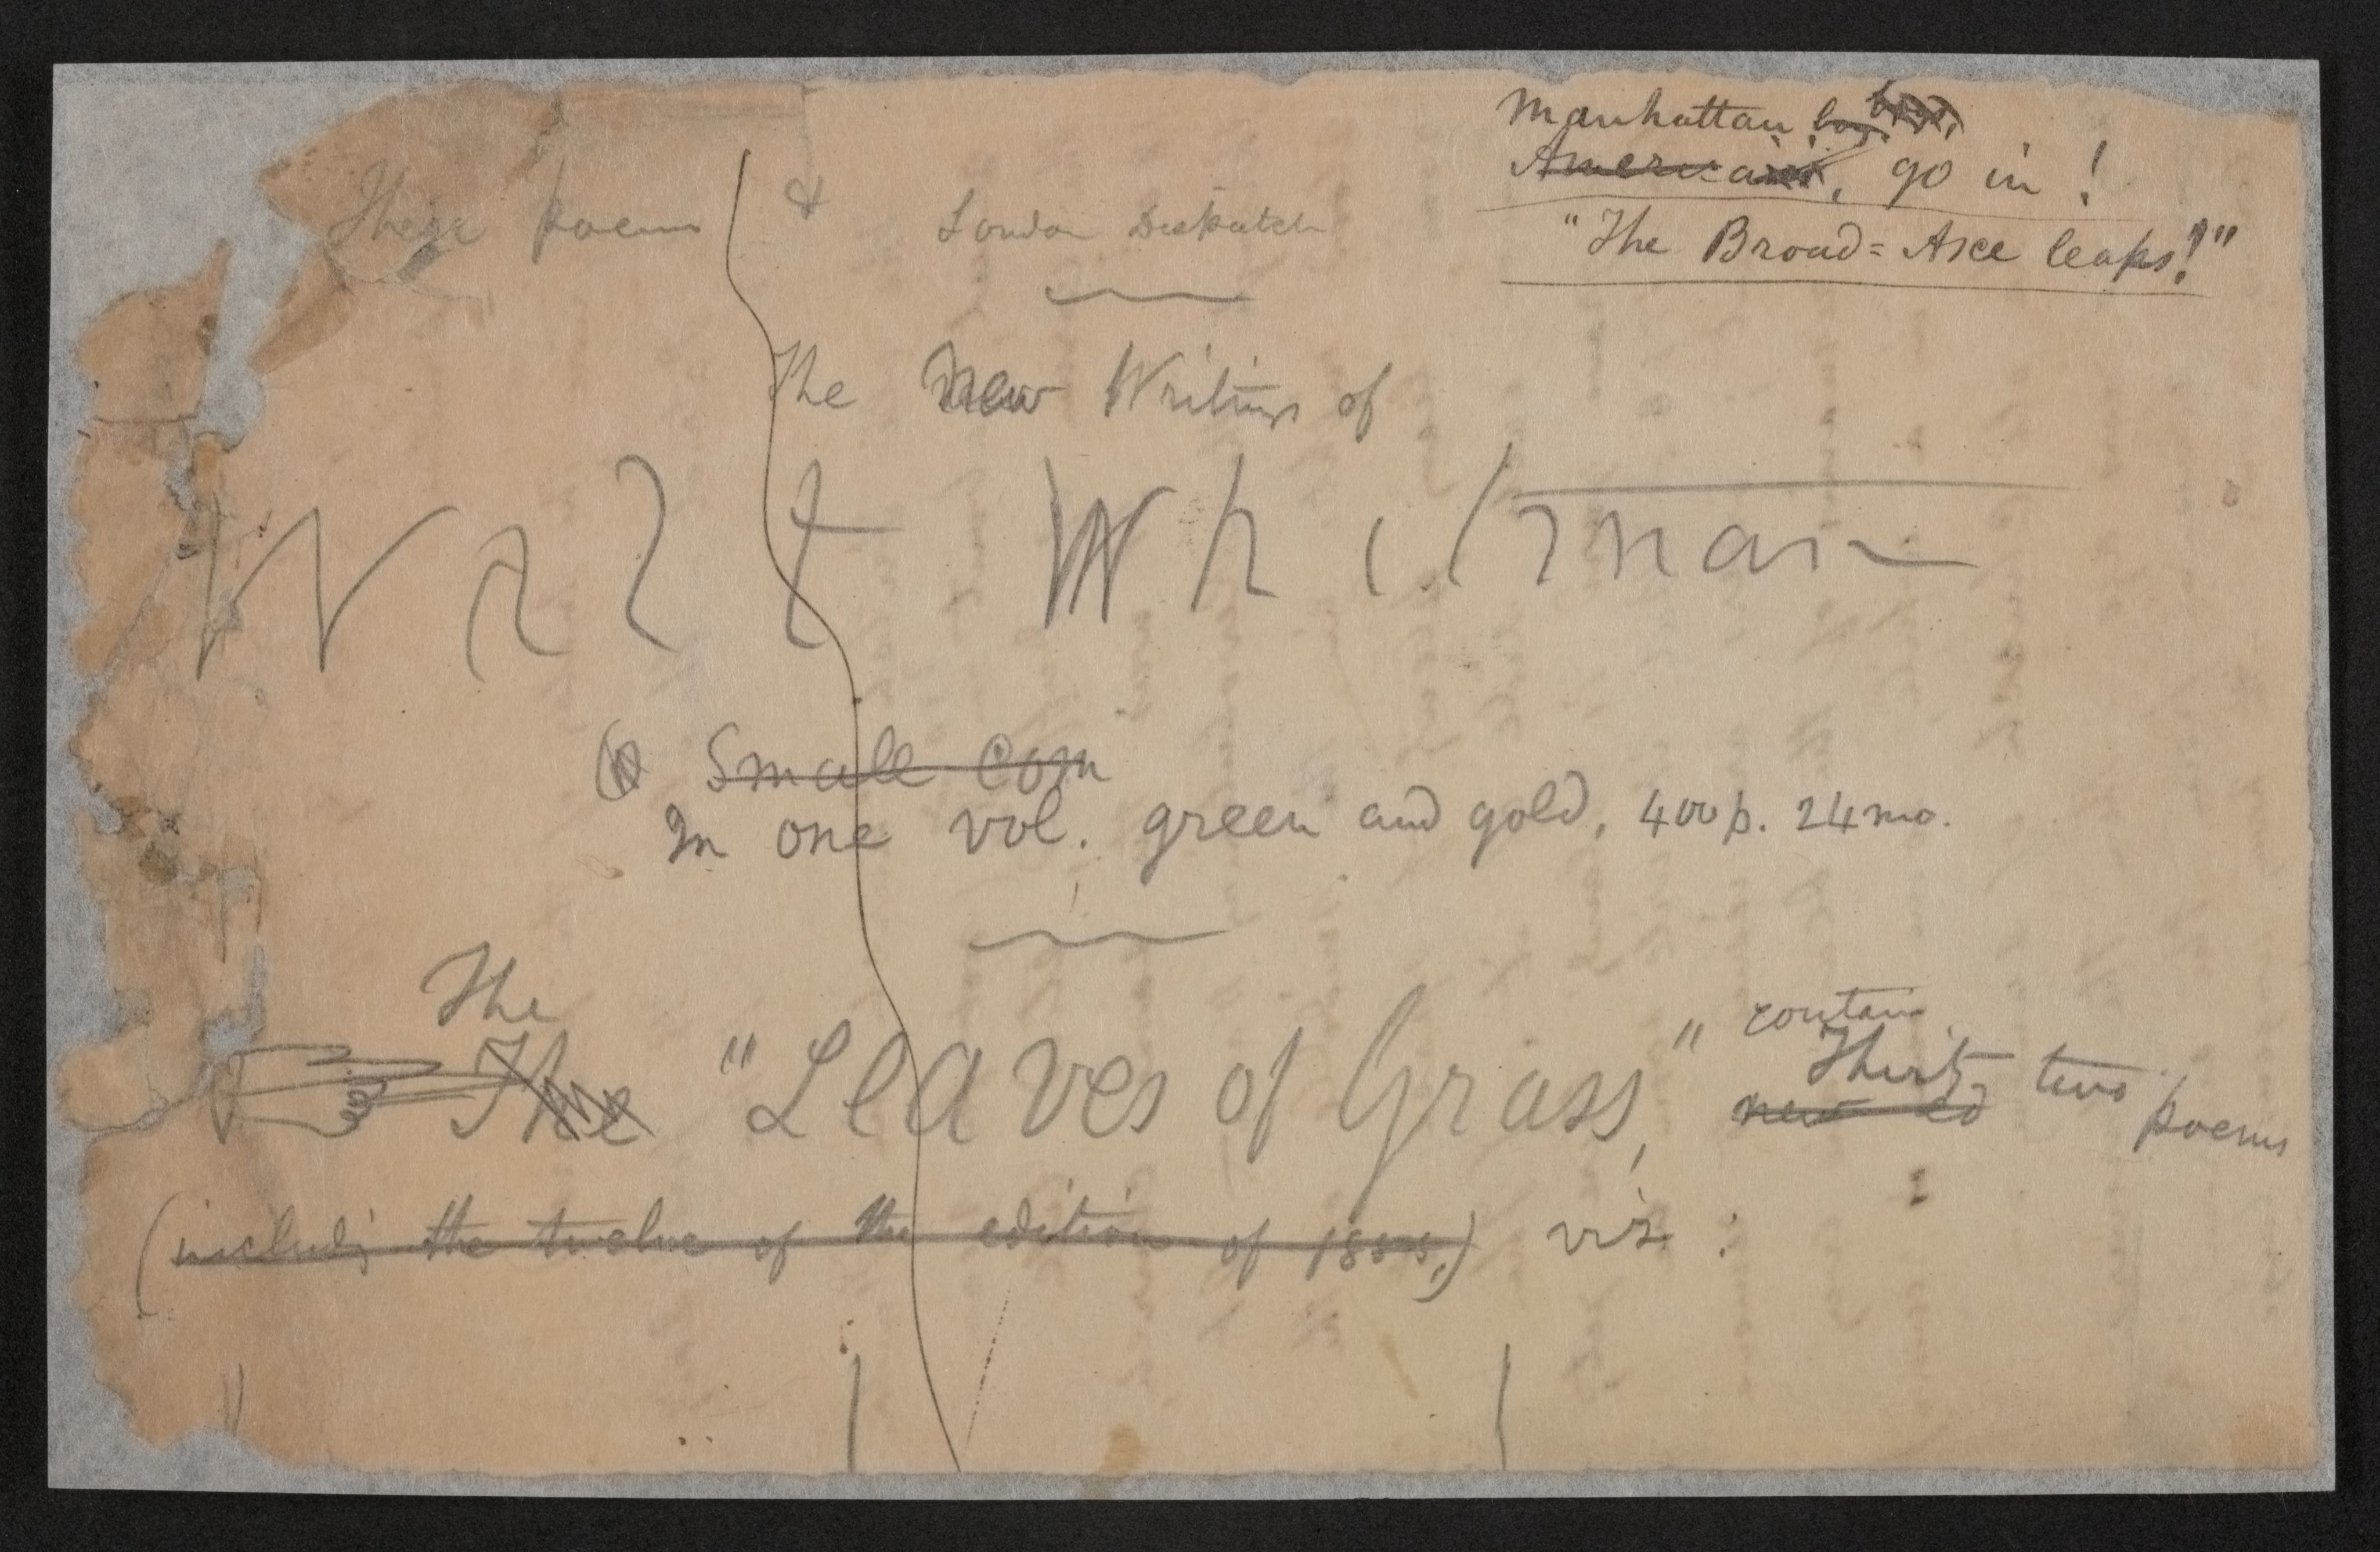 Manhattan boy boys,
American, go in!
"The Broad=Axe leaps!"
These poems & London Dispatch
The New Writings of
Walt Whitman
Small Com
In one vol. green and gold, 400 p. 24mo.
The
The "Leaves of Grass," contain
new ed Thirty two poems
(includ'g the twelve of the edition of 1855,) viz: